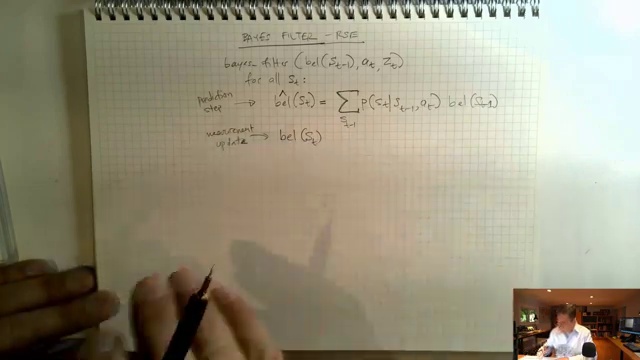 BAYES FILTER - RSE
bayes-filter (bel(S_{t-1}), a_t, Z_t)
for all S_t:
prediction step → bel^(S_t) = ∑_{S_{t-1}} P(S_t | S_{t-1}, a_t) bel(S_{t-1})
measurement update → bel(S_t)